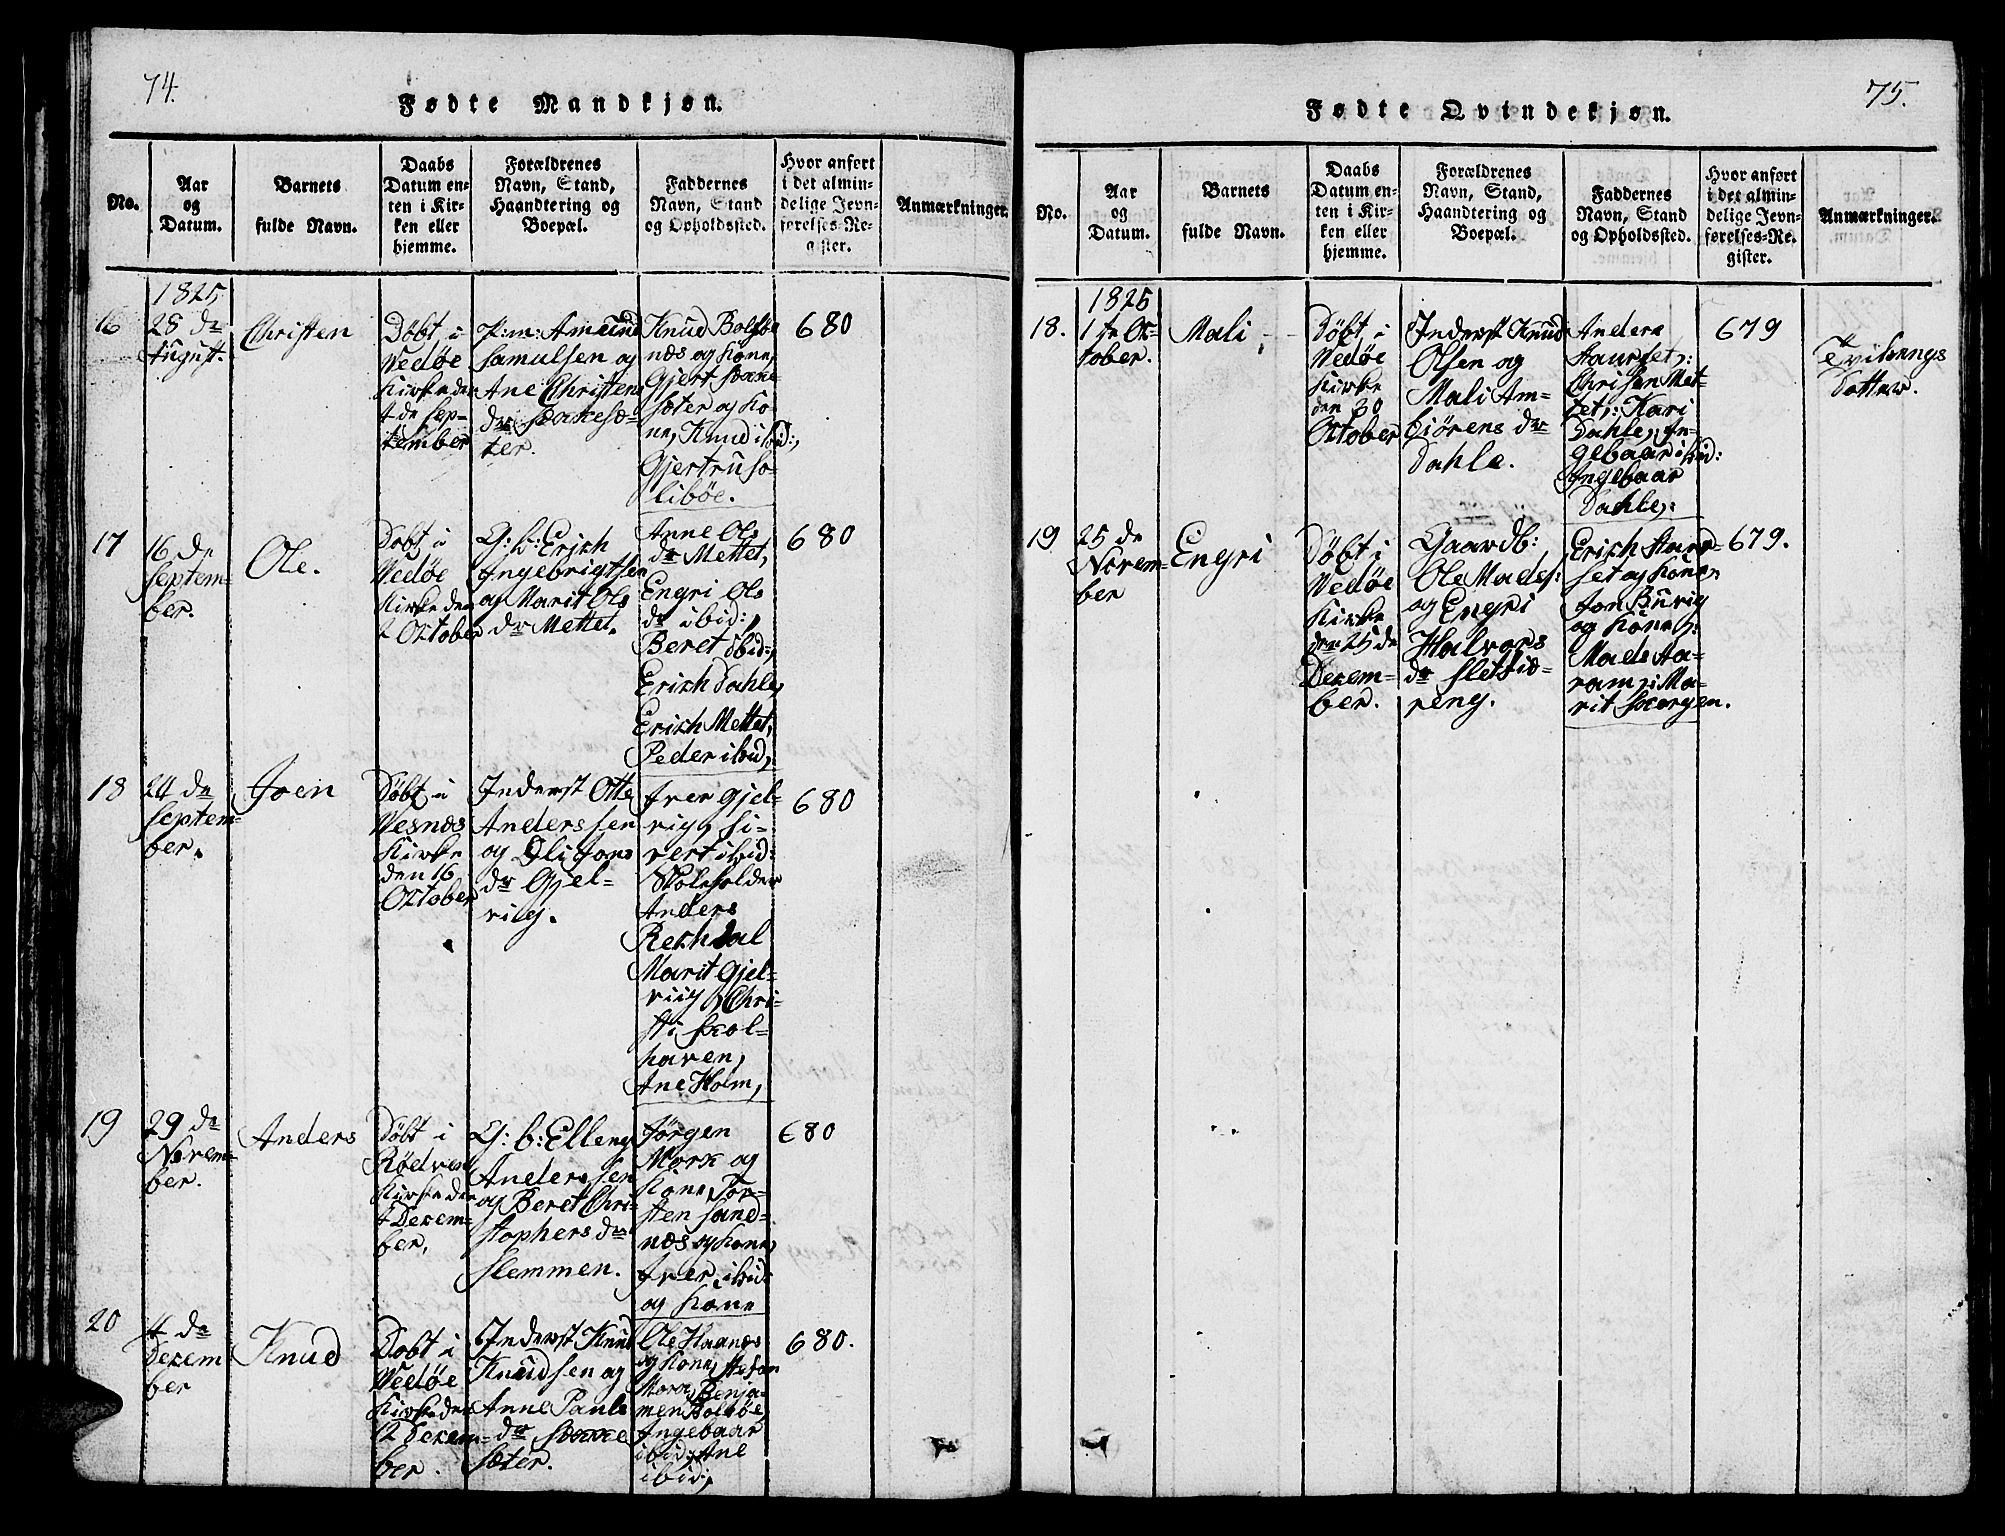 74.
Fødte Mandkjøn.
No.
Aar
og
Datum.
Barnets
fulde Navn.
Daabs
Datum en-
ten i Kir-
ken eller
hjemme.
Forældrenes
Navn, Stand,
Haandtering og
Boepæl.
Faddernes
Navn, Stand
og Opholdssted.
Hvor anført
i det almin-
delige Jevn-
førelses-Re-
gister.
Anmærkninger.
1825
16
28 de
August.
Christen
Døbt i
Vedøe
Kirke den
4de Sep-
tember
P:m: Amund
Samulsen og
Ane Christens
dr
ter.
Knud Bolsøe
næs og Kone,
Gjert
sæter og Ko-
ne, Knud ibid:,
Gjertru So-
libøe.
680
17
16 de
Septem-
ber.
Ole.
Døbt i
Vedøe
Kirke den
2 October
G: b: Erich
Ingebrigtsen
og Marit Ols
dr Mettet.
Anne Ols
dr Mettet,
Engri Ols
dr ibid:,
Beret ibid:,
Erich Dahle,
Erich Mettet,
Peder ibid,
680
18
24 de
Septem-
ber.
Joen
Døbt i
Vesnæs
Kirke
den 16
October
Inderst Otte
Anderssen
og Oli Jons
dr Gjel-
viig.
Iver Gjel-
viig, Si-
vert ibid:
Skoleholder
Anders
Rechdal
Marit Gjel-
viig, Chri-
sti Skol-
haven,
Ane Holm,
680
19
29 de
Novem-
ber.
Anders
Døbt i
Rødven
Kirke den
4 Decem-
ber,
G: b: Elleng
Anderssen
og Beret Chri-
stophers dr
Slemmen.
Jørgen
Mork og
Kone, Tor-
sten Sand-
næs og Kone,
Iver ibid:
og Kone
680
20
4 de
Decem
ber
Knud
Døbt i
Vedøe
Kirke den
12 Decem-
ber.
Inderst Knud
Knudsen og
Anne Pauls
dr
Sæter.
Ole Haanæs
og Kone,
Benja-
men Bolsøe,
Ingebaar
ibid:, Ane
ibid:,
680.
75.
Fødte Qvindekjøn.
No.
Aar
og
Datum.
Barnets
fulde Navn.
Daabs
Datum en-
ten i Kir-
ken eller
hjemme.
Forældrenes
Navn, Stand,
Haandtering og
Boepæl.
Faddernes
Navn, Stand
og Opholdssted.
Hvor anført
i det almin-
delige Jevn-
førelses-Re-
gister.
Anmærkninger.
1825
18.
1 ste Oc-
tober.
Mali
Døbt i
Vedøe
Kirke
den 30
October
Inderst Knud
Olsen og
Mali Am-
biørens dr
Dahle.
Anders
Staurset,:
Christen Met-
tet,: Kari
Dahle, In-
gebaar ibid:
Ingebaar
Dahle,:
679
Tvillings
Datter.
19
25 de
Novem-
ber
Engri
Døbt i
Vedøe
Kirke
den 25 de
Decem-
ber.
Gaardb:
Ole Mads:
og Engri
Halvors
dr Sletti-
reng.
Erich Staur-
set og Kone,
Jon Buvig
og Kone,:
Mads Aa-
ram,: Ma-
rit Skorgen.
679.